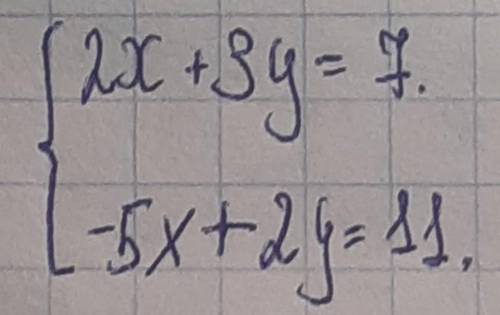 2x + 3y = 7.
-5x + 2y = 11.